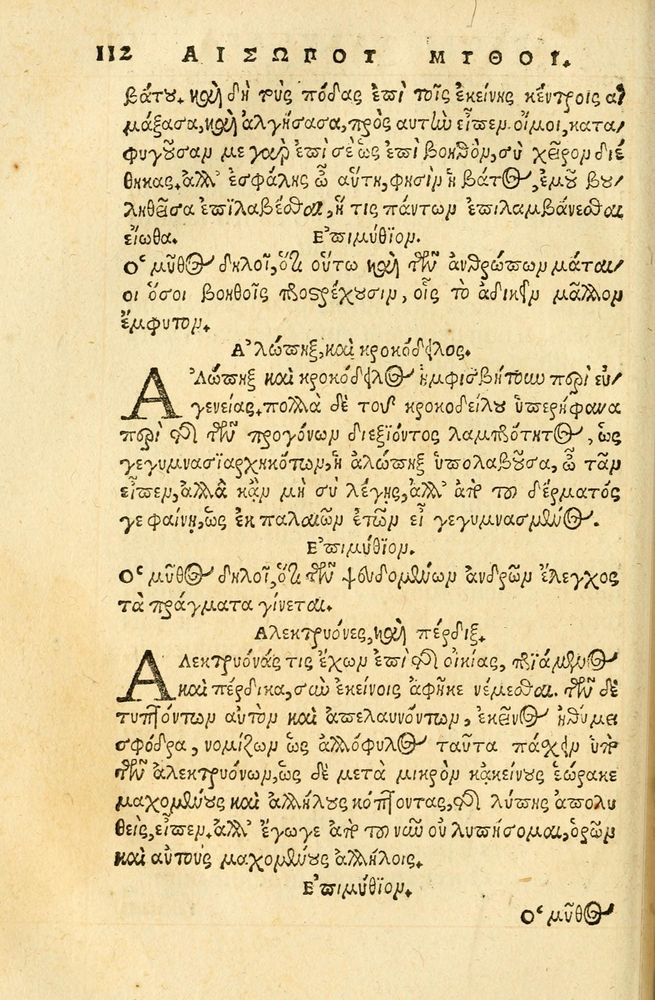 112 ΑΙΣΩΠΟΥ ΜΥΘΟΙ.
βάτου. καὶ δὴ τοὺς πόδας ἐπὶ τοῖς ἐκείνης κέντροις αἱ/
μάξασα, καὶ ἀλγήσασα, πρὸς αὐτὴν εἶπεν. οἴμοι, κατα/
φυγοῦσαν με γὰρ ἐπὶ σὲ ὡς ἐπὶ βοηθὸν, σὺ χεῖρον διέ
θηκας. ἀλλ' ἐσφάλης ὦ αὕτη, φησὶν ἡ βάτος, ἐμοῦ βου/
ληθεῖσα ἐπιλαβέσθαι, ἥ τις πάντων ἐπιλαμβάνεσθαι
εἴωθα. Ἐπιμύθιον.
Ὁ μῦθος δηλοῖ, ὅτι οὕτω καὶ τῶν ἀνθρώπων μάται/
οι ὅσοι βοηθοῖς προστρέχουσιν, οἷς τὸ ἀδικεῖν μᾶλλον
ἔμφυτον.
Ἀλώπηξ, καὶ κροκόδειλος.
Ἀλώπηξ καὶ κροκόδειλος ἠμφισβήτουν περὶ εὐ/
γενείας. πολλὰ δὲ τοῦ κροκοδείλου ὑπερήφανα
περὶ τῆς τῶν προγόνων διεξϊόντος λαμπρότητος, ὡς
γεγυμνασϊαρχηκότων, ἡ ἀλώπηξ ὑπολαβοῦσα, ὦ τᾶν
εἶπεν, ἀλλὰ κἂν μὴ σὺ λέγῃς, ἀλλ' ἀπὸ τοῦ δέρματός
γε φαίνῃ, ὡς ἐκ παλαιῶν ἐτῶν εἶ γεγυμνασμένος.
Ἐπιμύθϊον.
Ὁ μῦθος δηλοῖ, ὅτι τῶν ψευδομένων ἀνδρῶν ἔλεγχος
τὰ πράγματα γίνεται.
Ἀλεκτρυόνες, καὶ πέρδιξ.
Ἀλεκτρυόνάς τις ἔχων ἐπὶ τῆς οἰκίας, πρϊάμενος
καὶ πέρδικα, σὺν ἐκείνοις ἀφῆκε νέμεσθαι. τῶν δὲ
τυπτόντων αὐτὸν καὶ ἀπελαυνόντων, ἐκεῖνος ἠθύμει
σφόδρα, νομίζων ὡς ἀλλόφυλος ταῦτα πάσχειν ὑπὸ
τῶν ἀλεκτρυόνων, ὡς δὲ μετὰ μικρὸν κἀκείνους ἑώρακε
μαχομένους καὶ ἀλλήλους κόπτοντας, τῆς λύπης ἀπολυ
θεὶς, εἶπεν. ἀλλ' ἔγωγε ἀπὸ τοῦ νῦν οὐ λυπήσομαι, ὁρῶν
καὶ αὐτοὺς μαχομένους ἀλλήλοις.
Ἐπιμύθϊον.
Ὁ μῦθος